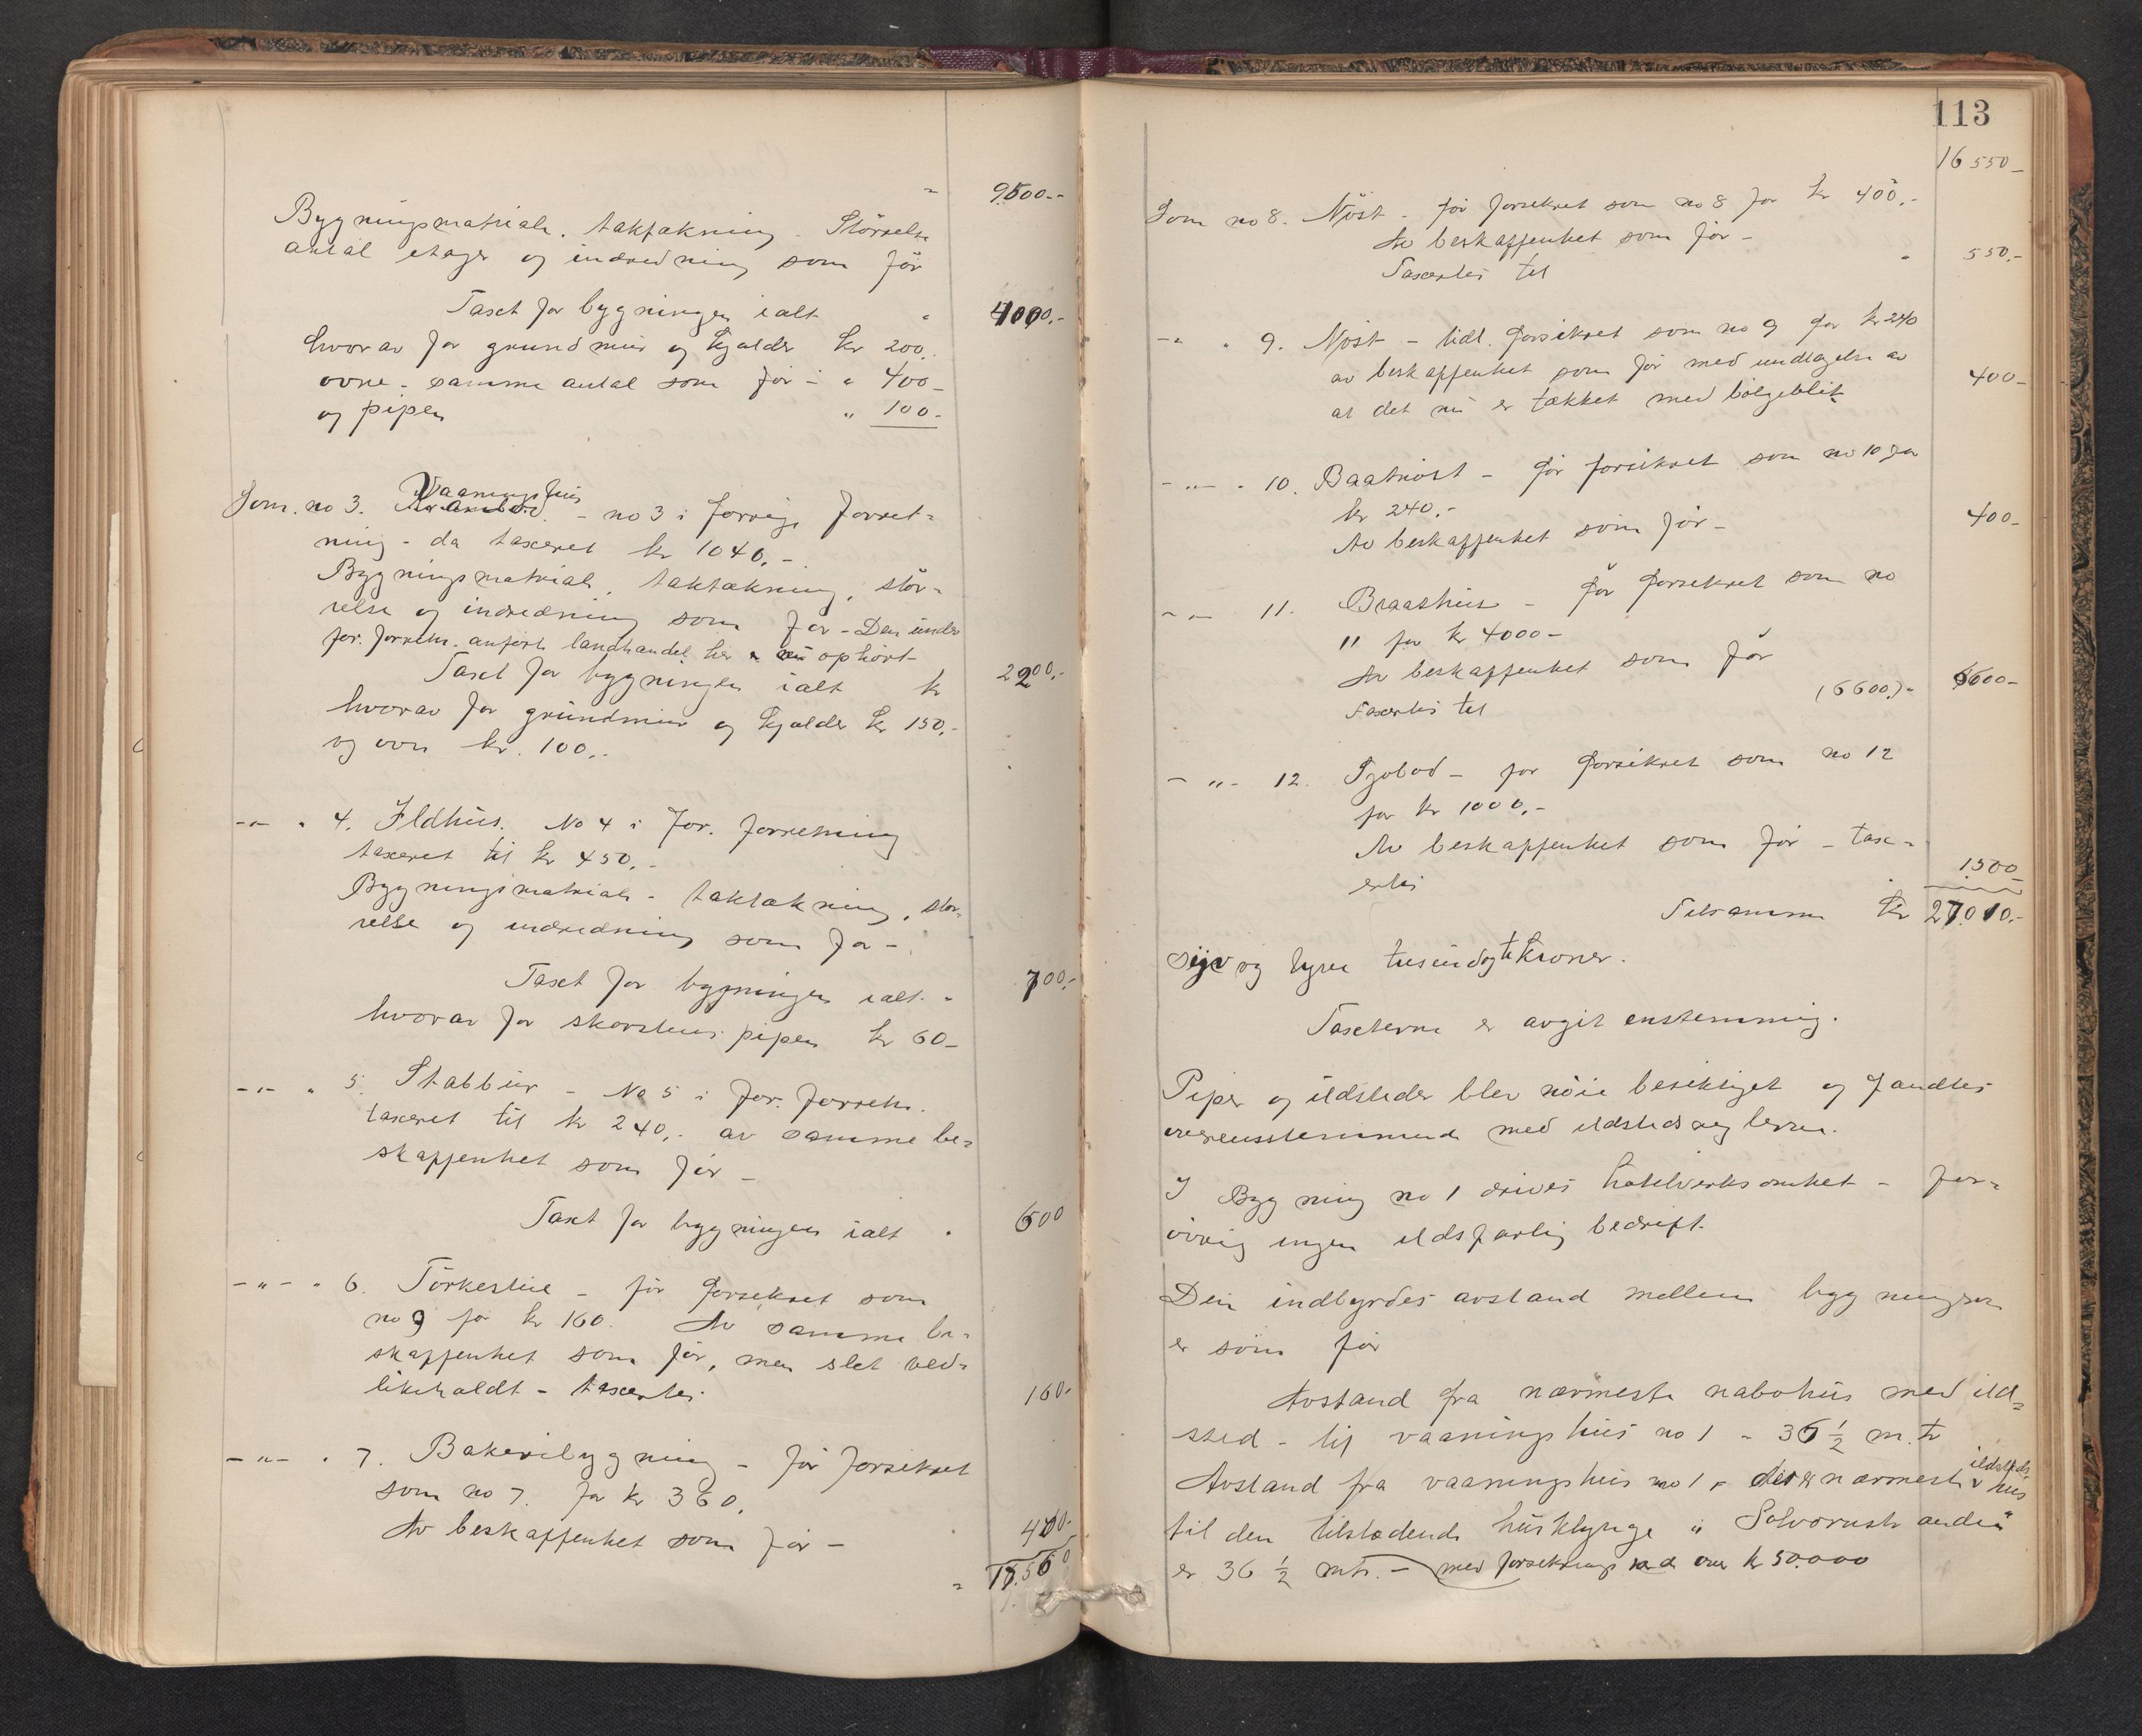 " 9500.--
Bygningsmatriale. taktækning. Störrelse
antal etager og indredning som för
Taxt for bygningen ialt " 4000.-
hvorav for grundmur og kjælder kr 200.-
ovne - samme antal som för - " 400-
og pipen " 100.-
Som. no 3. Vaaningshus - no 3 i forrige forret=
ning - da taxeret kr 1040.-
Bygningsmatriale, taktækning, stör=
relse og indredning som för - Den under
for. forretn. anförte landhandel her er nu ophört-
Taxt for bygningen ialt kr 2200.-
hvorav for grundmur og kjælder kr 150.-
og ovn kr. 100.-
-"- " 4. Ildhus. No 4 i for. forretning
taxeret til kr 450.-
Bygningsmatriale - taktækning, stör=
relse og indredning som för -
Taxt for bygningen ialt. " 700.-
hvorav for skorstens pipen kr 60-
-"- " 5. Stabbur - No 5 i for. forretn.
taxeret til kr 240.- av samme be=
skaffenhet som för -
Taxt for bygningen ialt " 600
-"- " 6. Törkestue - för forsikret som
no 9 for kr 160. Av samme be=
skaffenhet som för, men slet ved=
likeholdt - taxertes 160-
-"- " 7. Bakeribygning - för forsikret
som no 7. for kr 360.
Av beskaffenhet som för - 400-
"
113
16 550-
Som no 8. Nöst - för forsikret som no 8 for kr 400.-
Av beskaffenhet som för -
Taxertes til " 550.-
-"- " 9. Nöst - tidl. forsikret som no 9 for kr 240
av beskaffenhet som för med undtagelse av
at det nu er tækket med bölgeblik 400-
-"- " 10. Baatnöst - för forsikret som no 10 for
kr 240.-
Av beskaffenhet som för - 400-
-"- 11. Braathus - för forsikret som no
11 for kr 4000-
Av beskaffenhet som för
Taxertes til (6600.)- 6600-
-"- 12. Sjobod - för forsikret som no 12
for kr 1000.-
Av beskaffenhet som för - tax=
ertes " 1500
Tilsammen kr 27010.-
syv og tyve tusind og ti kroner.
Taxterne er avgit enstemmig.
Piper og ildsteder blev nöie besiktiget og fandtes
overensstemmende med ildstedsreglerne.
I Bygning no 1 drives hotelvirksomhet - for=
övrig ingen ildsfarlig bedrift.
Den indbyrdes avstand mellem bygningerne
er som för
Avstand fra nærmeste nabohus med ild=
sted - til vaaningshus no 1 - 36 1/2 m.tr
Avstand fra vaaningshus no 1 - det nærmeste ildsteds-
hus
til den tilstödende husklynge "Solvorustranden"
er 36 1/2 mtr. - med forsikrings over kr 50.000